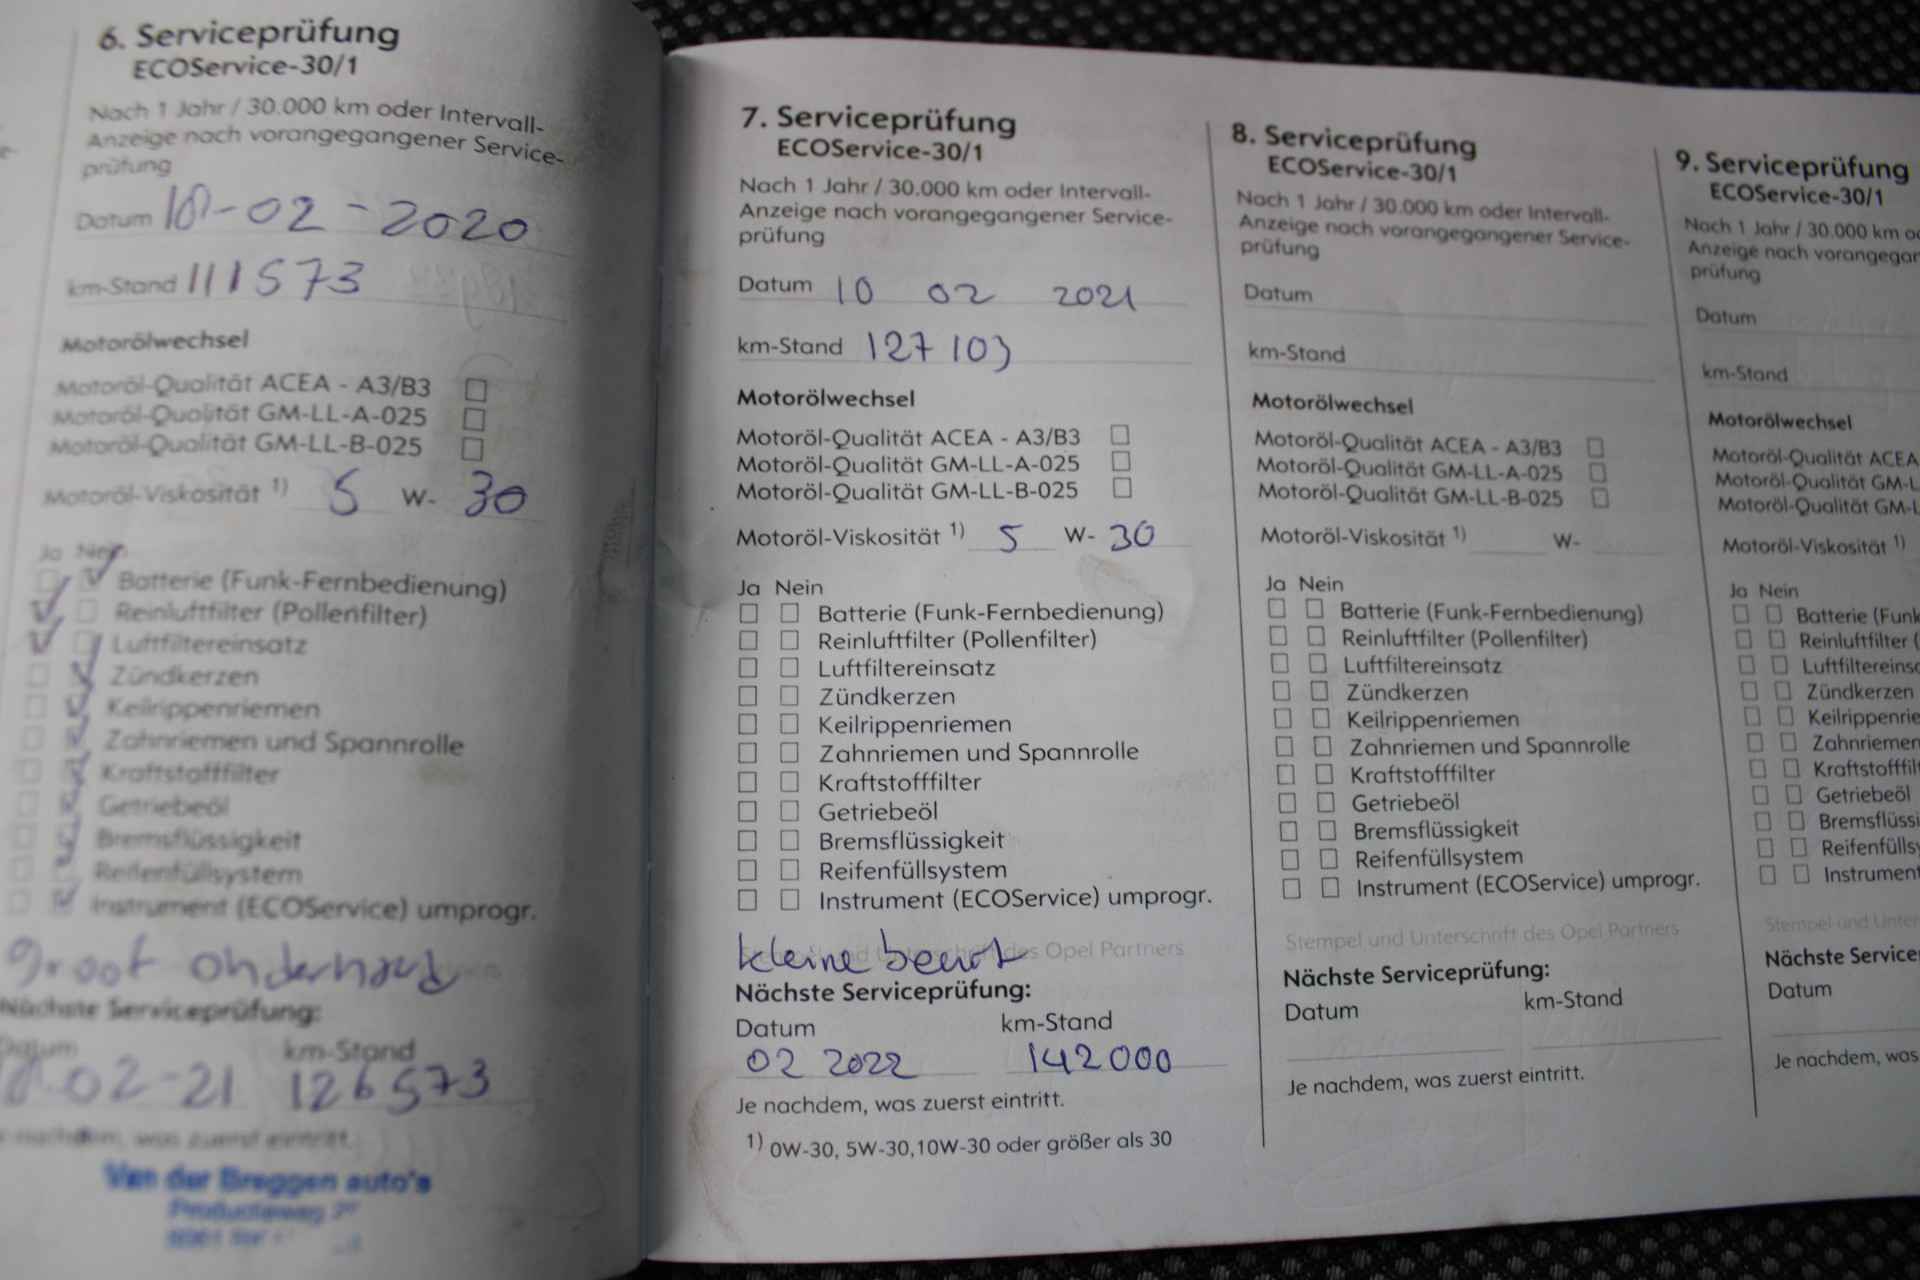 6. Serviceprüfung
ECOService-30/1
Nach 1 Jahr / 30.000 km oder Intervall-
Anzeige nach vorangegangener Service-
prüfung
Datum 10-02-2020
km-Stand 111573
Motorölwechsel
Motoröl-Qualität ACEA - A3/B3
Motoröl-Qualität GM-LL-A-025
Motoröl-Qualität GM-LL-B-025
Motoröl-Viskosität 1) 5 W- 30
Ja Nein
Batterie (Funk-Fernbedienung)
Reinluftfilter (Pollenfilter)
Luftfiltereinsatz
Zündkerzen
Keilrippenriemen
Zahnriemen und Spannrolle
Kraftstofffilter
Getriebeöl
Bremsflüssigkeit
Reifenfüllsystem
Instrument (ECOService) umprogr.
groot onderhoud
Nächste Serviceprüfung:
Datum km-Stand
02-21 126573
Je nachdem, was zuerst eintritt.
Van der Breggen auto's
7. Serviceprüfung
ECOService-30/1
Nach 1 Jahr / 30.000 km oder Intervall-
Anzeige nach vorangegangener Service-
prüfung
Datum 10 02 2021
km-Stand 127103
Motorölwechsel
Motoröl-Qualität ACEA - A3/B3
Motoröl-Qualität GM-LL-A-025
Motoröl-Qualität GM-LL-B-025
Motoröl-Viskosität 1) 5 W- 30
Ja Nein
Batterie (Funk-Fernbedienung)
Reinluftfilter (Pollenfilter)
Luftfiltereinsatz
Zündkerzen
Keilrippenriemen
Zahnriemen und Spannrolle
Kraftstofffilter
Getriebeöl
Bremsflüssigkeit
Reifenfüllsystem
Instrument (ECOService) umprogr.
Stempel und Unterschrift des Opel Partners
kleine beurt
Nächste Serviceprüfung:
Datum km-Stand
02 2022 142000
Je nachdem, was zuerst eintritt.
1) 0W-30, 5W-30,10W-30 oder größer als 30
8. Serviceprüfung
ECOService-30/1
Nach 1 Jahr / 30.000 km oder Intervall-
Anzeige nach vorangegangener Service-
prüfung
Datum
km-Stand
Motorölwechsel
Motoröl-Qualität ACEA - A3/B3
Motoröl-Qualität GM-LL-A-025
Motoröl-Qualität GM-LL-B-025
Motoröl-Viskosität 1) W-
Ja Nein
Batterie (Funk-Fernbedienung)
Reinluftfilter (Pollenfilter)
Luftfiltereinsatz
Zündkerzen
Keilrippenriemen
Zahnriemen und Spannrolle
Kraftstofffilter
Getriebeöl
Bremsflüssigkeit
Reifenfüllsystem
Instrument (ECOService) umprogr.
Stempel und Unterschrift des Opel Partners
Nächste Serviceprüfung:
Datum km-Stand
Je nachdem, was zuerst eintritt.
9. Serviceprüfung
ECOService-30/1
Nach 1 Jahr / 30.000 km o
Anzeige nach vorangegan
prüfung
Datum
km-Stand
Motorölwechsel
Motoröl-Qualität ACEA
Motoröl-Qualität GM-L
Motoröl-Qualität GM-L
Motoröl-Viskosität 1)
Ja Nein
Batterie (Funk
Reinluftfilter (
Luftfiltereinsa
Zündkerzen
Keilrippenrie
Zahnriemen
Kraftstofffilt
Getriebeöl
Bremsflüssi
Reifenfüllsy
Instrument
Stempel und Unter
Nächste Service
Datum
Je nachdem, was